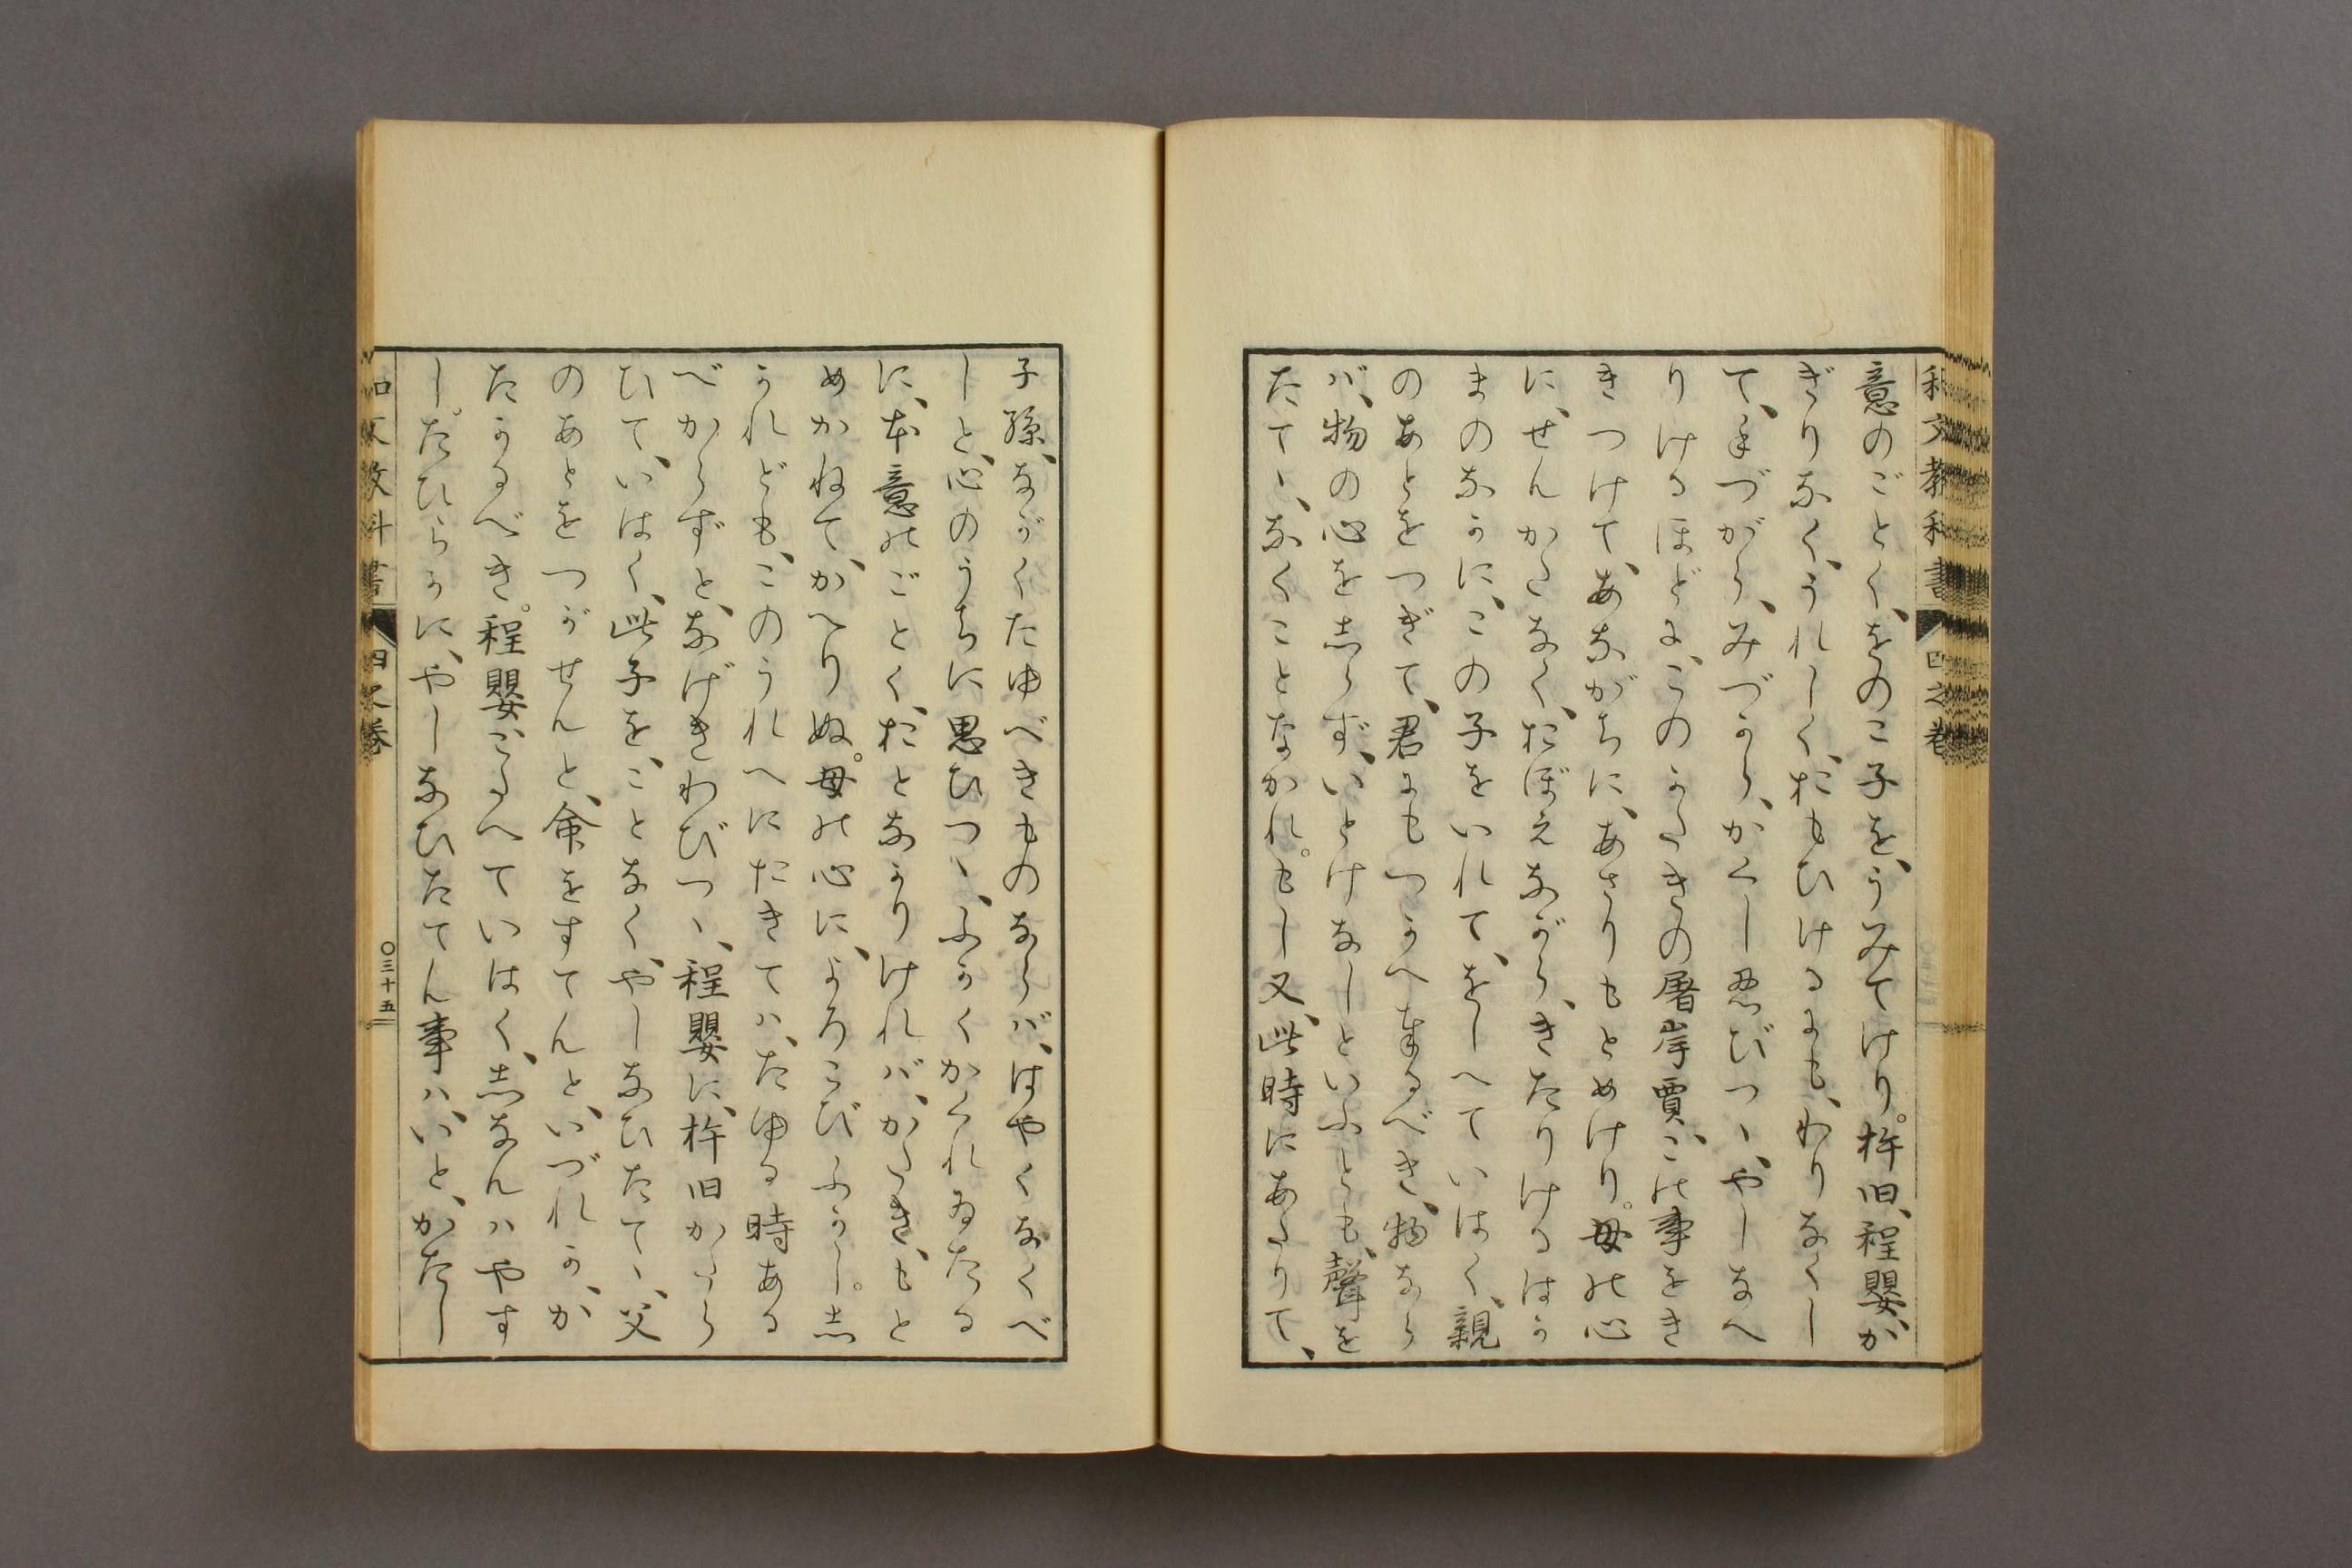 和文教科書 四之巻
意のごとく、をのこ子を、うみてけり。杵臼、程嬰、か
ぎりなく、うれしく、おもひけるにも、わりなくし
て、手づから、みづから、かくし忍びつゝ、やしなへ
りけるほどに、このかたきの屠岸賈、この事をき
きつけて、あながちに、あさりもとめけり。母の心
に、せんかたなく、おぼえながら、きたりけるはか
まのなかに、この子をいれて、をしへていはく、親
のあとをつぎて、君にもつかへ奉るべき、物なら
バ、物の心をしらず、いとけなしといふとも、聲を
たてゝ、なくことなかれ。もし又、此時にあたりて、
子孫、ながくたゆべきものならバ、はやくなくべ
しと、心のうちに思ひつゝ、ふかくかくれゐたる
に、本意のごとく、おとなかりけれバ、かたき、もと
めかねて、かへりぬ。母の心に、よろこびふかし。し
かれども、このうれへにおきてハ、たゆる時ある
べからずと、なげきわびつゝ、程嬰に、杵臼かたら
ひて、いはく、此子を、ことなく、やしなひたてゝ、父
のあとをつがせんと、命をすてんと、いづれか、か
たかるべき。程嬰こたへていはく、しなんハやす
し。たひらかに、やしなひたてん事ハ、いと、かたし
和文教科書 四之巻 〇三十五